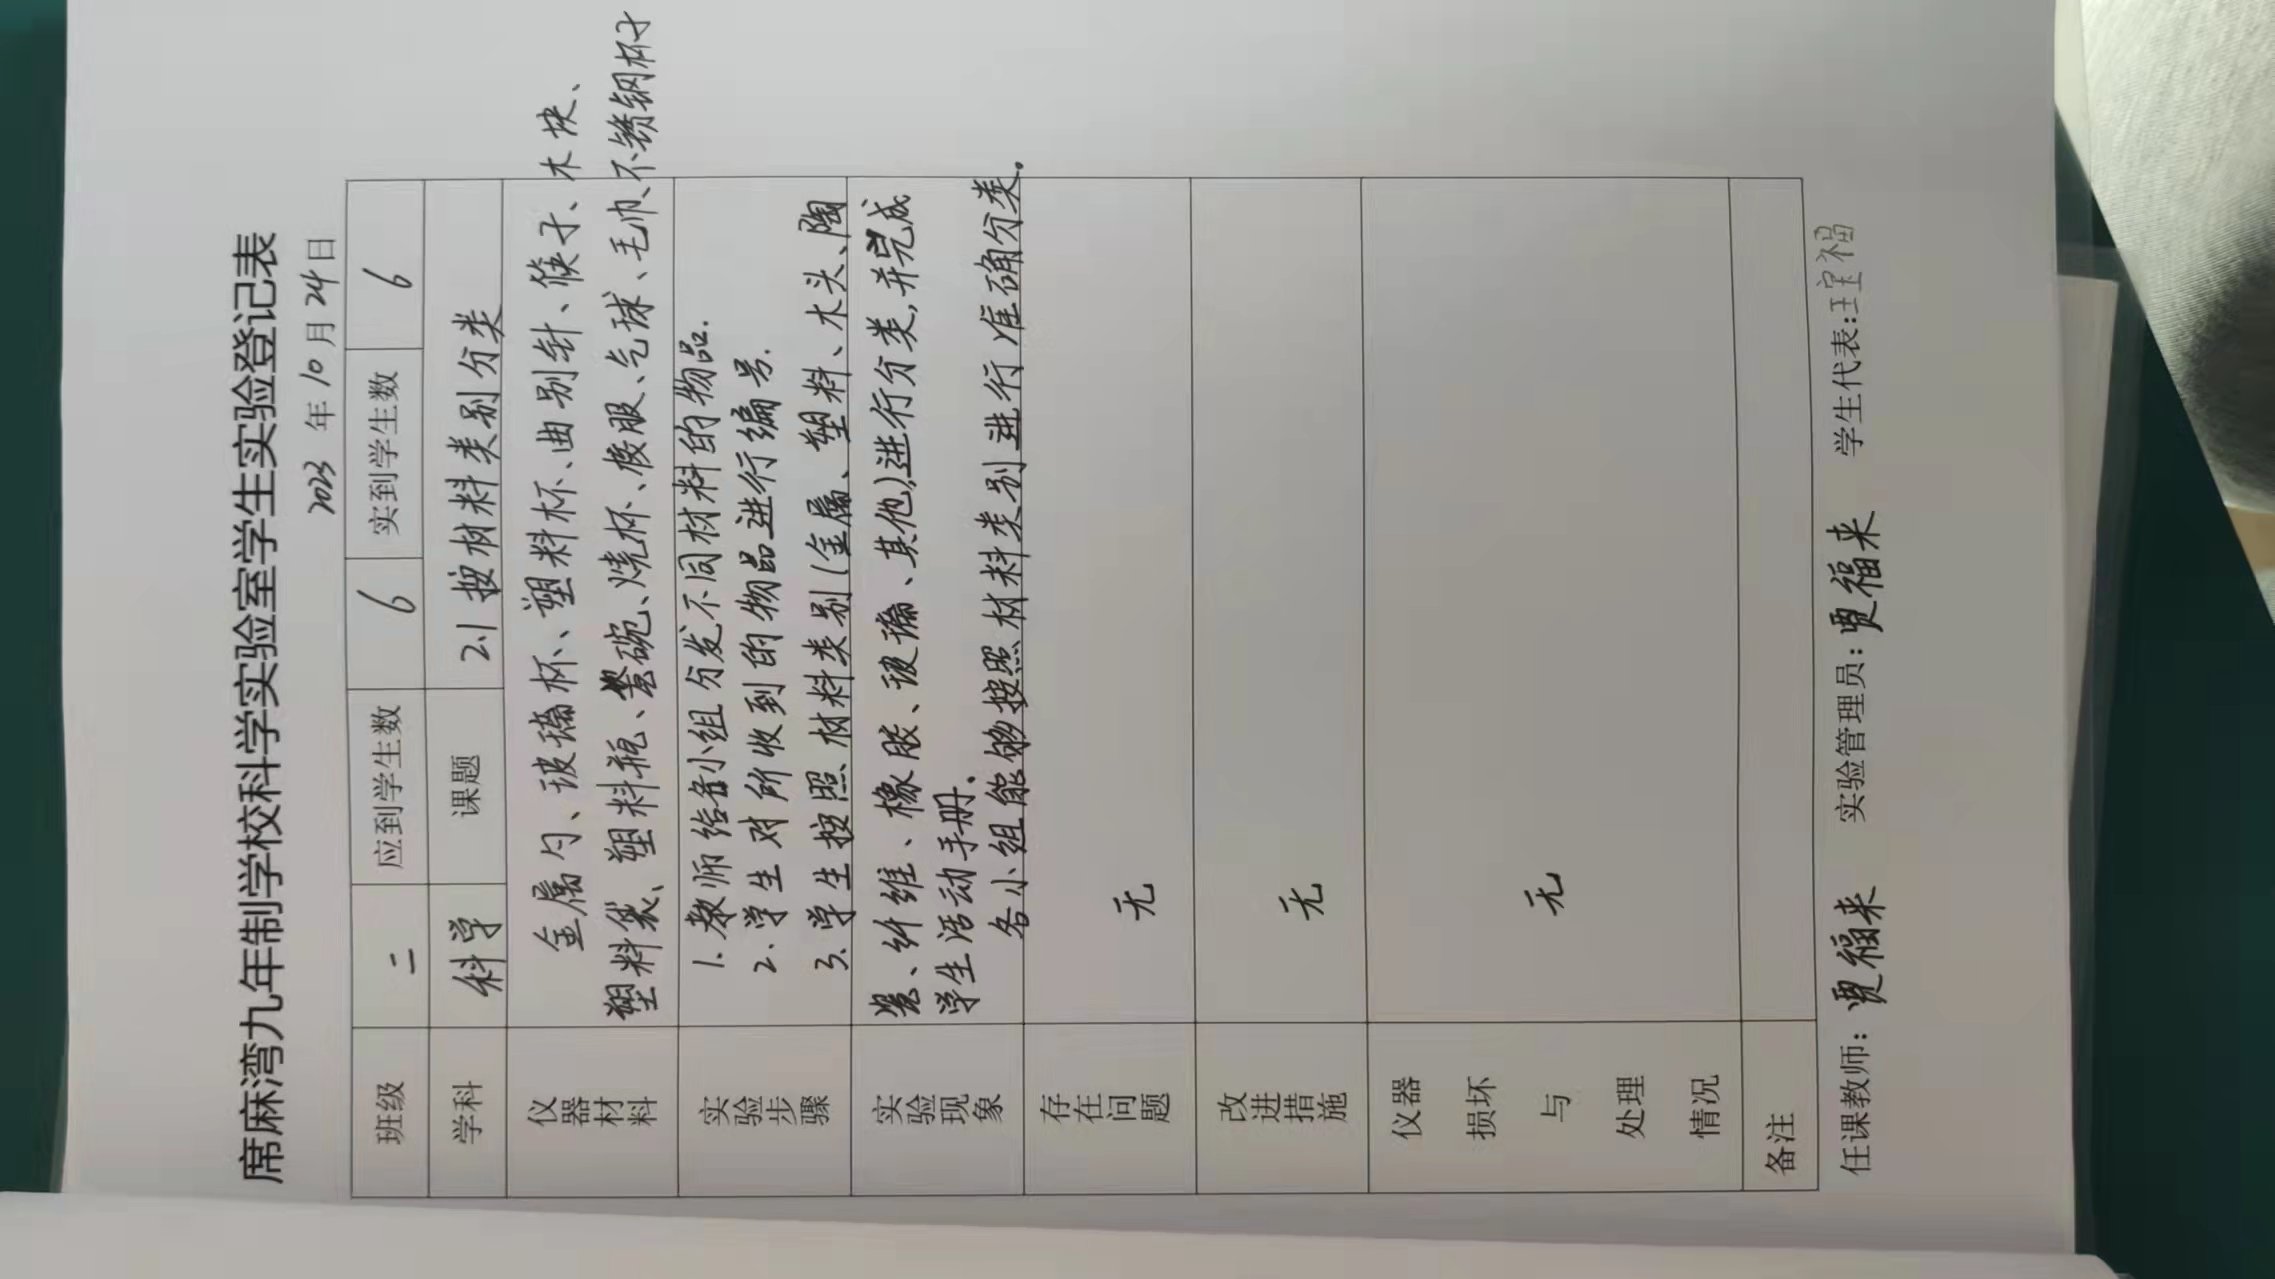 席麻湾九年制学校科学实验室学生实验登记表
2023 年 10 月 24 日
班级 二 应到学生数 6 实到学生数 6
学科 科学 课题 2.1 按材料类别分类
仪器材料
金属勺、玻璃杯、塑料杯、曲别针、筷子、木块、
塑料袋、塑料瓶、瓷碗、烧杯、校服、气球、毛巾、不锈钢杯子
实验步骤
1. 教师给各小组分发不同材料的物品.
2. 学生对所收到的物品进行编号.
3. 学生按照材料类别(金属、塑料、木头、陶
瓷、纤维、橡胶、玻璃、其他)进行分类,并完成
学生活动手册.
实验现象
各小组能够按照材料类别进行准确分类.
存在问题 无
改进措施 无
仪器损坏与处理情况 无
备注
任课教师: 贾福来 实验管理员: 贾福来 学生代表: 王宝福